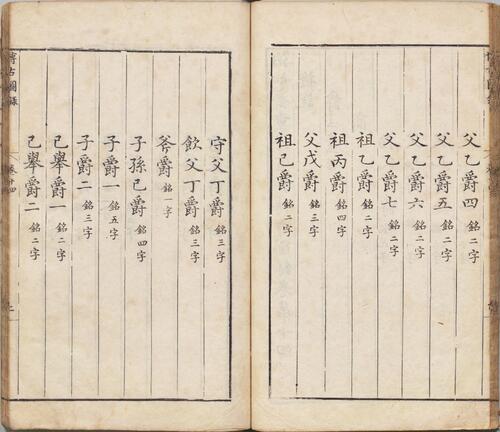 父乙爵四 銘二字
父乙爵五 銘二字
父乙爵六 銘二字
父乙爵七 銘二字
祖乙爵 銘二字
祖丙爵 銘四字
父戊爵 銘三字
祖己爵 銘二字
守父丁爵 銘三字
飲父丁爵 銘三字
斧爵 銘一字
子孫己爵 銘四字
子爵一 銘五字
子爵二 銘三字
己舉爵一 銘二字
己舉爵二 銘二字
博古圖錄
卷十四